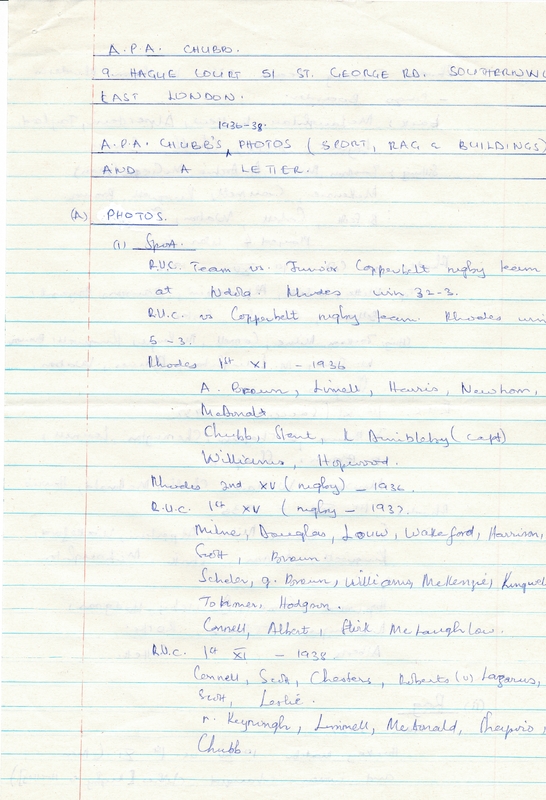 A.P.A. CHUBB.
9. HAGUE COURT 51 ST. GEORGE RD. SOUTHERNWO
EAST LONDON.
1936-38.
A.P.A. CHUBB'S PHOTOS (SPORT, RAG & BUILDINGS)
AND A LETTER.
(A) PHOTOS.
(1) Sport.
R.U.C. Team vs. Junior Copperbelt rugby team
at Ndola. Rhodes win 32-3.
R.U.C. vs Copperbelt rugby team. Rhodes win
5-3.
Rhodes 1st XI - 1936
A. Braun, Linnell, Harris, Newham,
McDonald
Chubb, Stent, K Dimbleby (capt)
Williams, Hopwood.
Rhodes 2nd XV (rugby) - 1936.
R.U.C. 1st XV (rugby - 1937.
Milne, Douglas, Louw, Wakeford, Harrison,
Scott, Braun.
Scheler, g. Braun, Williams, McKenzie, Kingwel
Hodgson.
Connell, Albert, McLaughlow.
R.U.C. 1st XI - 1938.
Connell, Scott, Chesters, Roberts (v) Lazarus,
Scott, Leslie.
Linnell, McDonald,
Chubb.